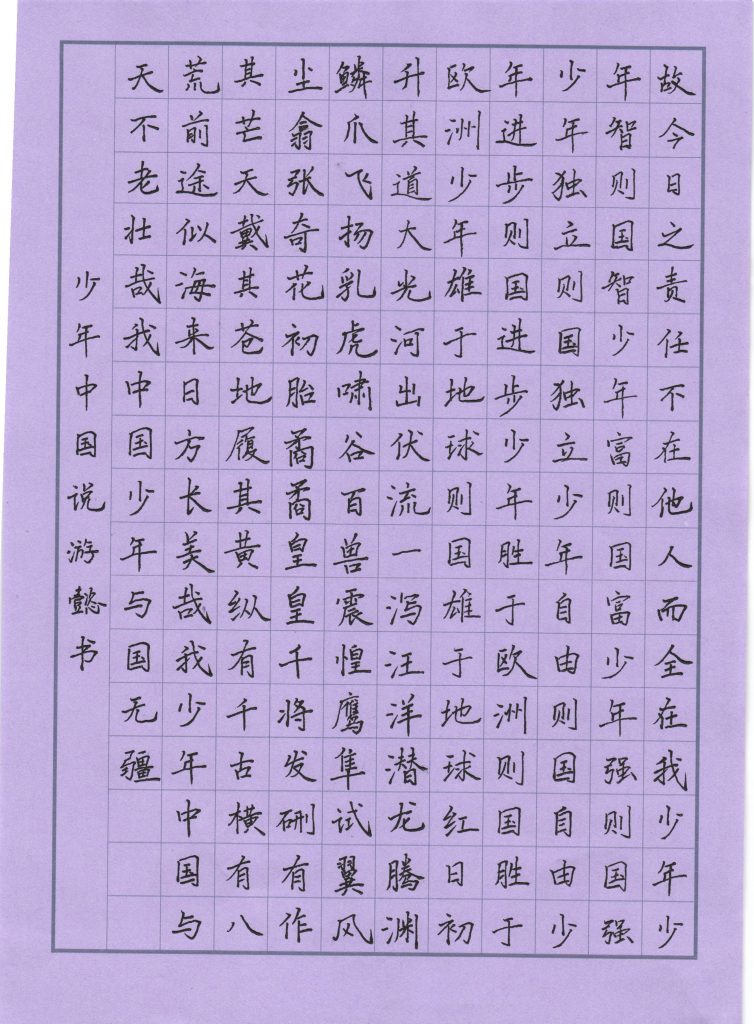 故今日之责任不在他人而全在我少年少
年智则国智少年富则国富少年强则国强
少年独立则国独立少年自由则国自由少
年进步则国进步少年胜于欧洲则国胜于
欧洲少年雄于地球则国雄于地球红日初
升其道大光河出伏流一泻汪洋潜龙腾渊
鳞爪飞扬乳虎啸谷百兽震惶鹰隼试翼风
尘翕张奇花初胎矞矞皇皇千将发硎有作
其芒天戴其苍地履其黄纵有千古横有八
荒前途似海来日方长美哉我少年中国与
天不老壮哉我中国少年与国无疆
少年中国说游懿书